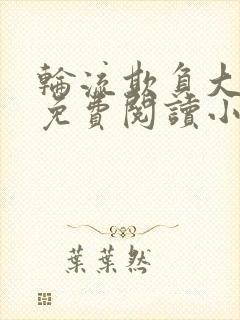 輪流欺負大
免費閱讀小
葉葉然